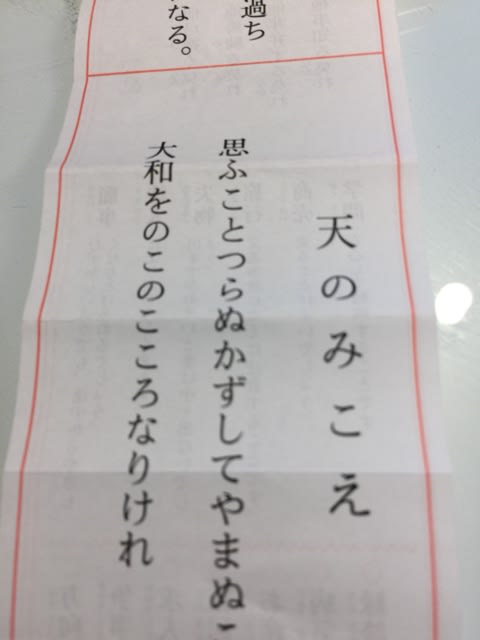 過ち
なる。
天のみこえ
思ふことつらぬかずしてやまぬこ
大和をのこのこころなりけれ